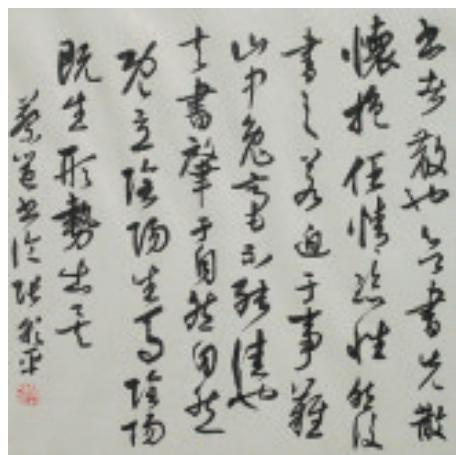 書者散也欲書先散
懷抱任情恣性然後
書之若迫于事雖
山中兔毫不能佳也
夫書肇于自然自然
既立陰陽生焉陰陽
既生形勢出矣
蔡邕書論張平